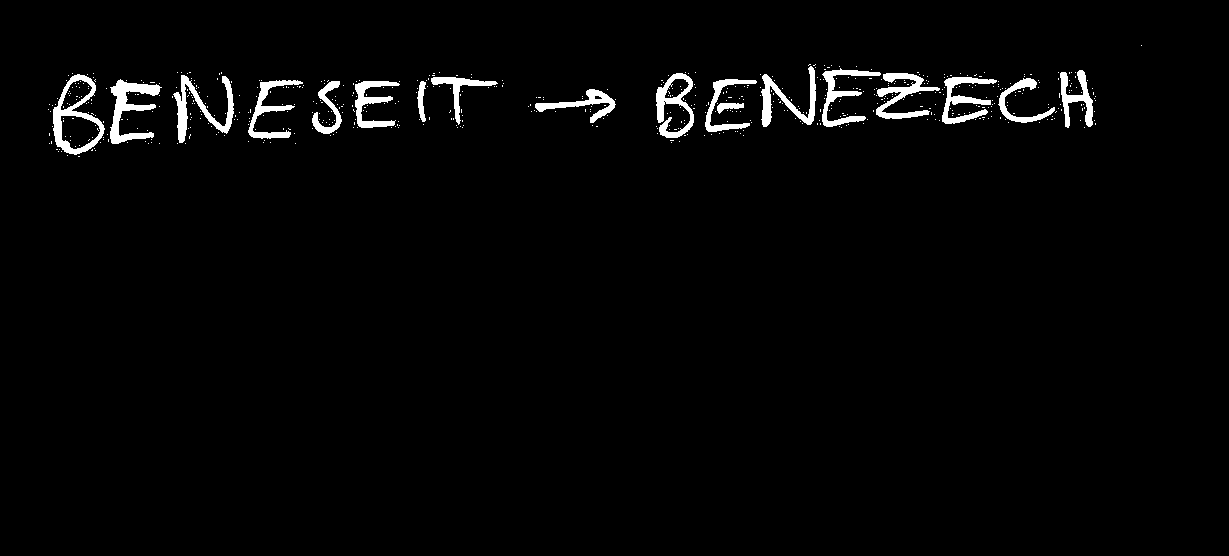 BENESEIT → BENEZECH